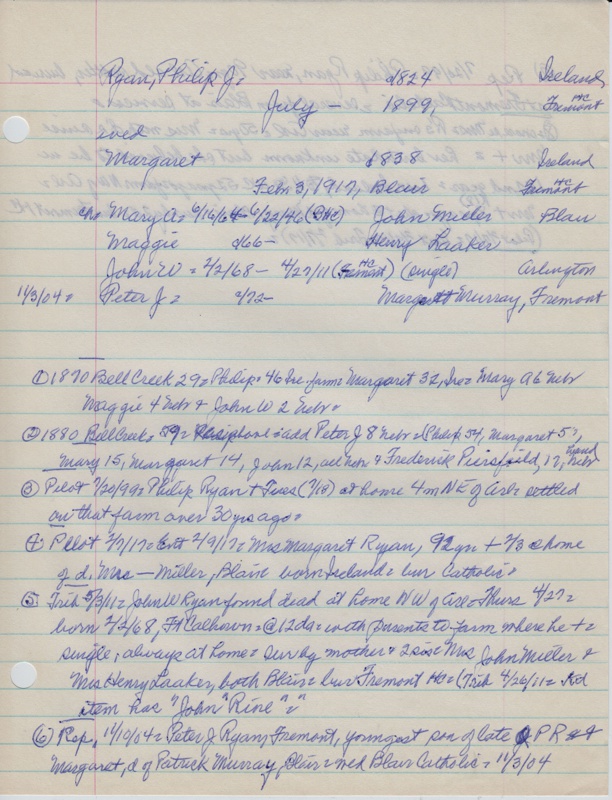 Ryan, Philip J. c1824 Ireland
July - 1899, Fremont HC
wed
Margaret c1838 Ireland
Feb 3, 1917, Blair Fremont HC
chn Mary A = 6/16/64 - 6/22/46 (BHC) John Miller Blair
Maggie c/66 - Henry Laaker
John W = 2/2/68 - 4/27/11 (Fremont HC) (single) Arlington
11/3/04 = Peter J = c/72 - Margarett Murray, Fremont
① 1870 Bell Creek 29 = Philip 46 Ire farm = Margaret 32, Ire = Mary A 6 Nebr
Maggie 4 Nebr & John W 2 Nebr =
② 1880 Bell Creek = 59 = add Peter J 8 Nebr = (Philip 54, Margaret
Mary 15, Margaret 14, John 12, all Nebr & Frederick 12, Nebr
③ Pilot 7/20/99 = Philip Ryan + Tues (7/18) at home 4 m NE of Arl = settled
on that farm over 30 yrs ago =
④ Pilot 2/7/17 = 2/9/17 = Mrs Margaret Ryan, 92 yrs + 2/3 @ home
of d. Mrs - Miller, Blair born Ireland = bur Catholic =
⑤ Trib 5/3/11 = John W Ryan found dead at home NW of Arl = Thurs 4/27 =
born 2/2/68, Ft Calhoun = @ 12 da = with parents to farm where he + =
single; always at home = sur by mother & 2 sis = Mrs John Miller &
Mrs Henry Laaker, both Blair = bur Fremont HC = (Trib 4/26/11 =
item has "John" Rine" =
⑥ Rep, 11/10/04 = Peter J Ryan, Fremont, youngest son of late P R &
Margaret, d of Patrick Murray, Blair = wed Blair Catholic = 11/3/04